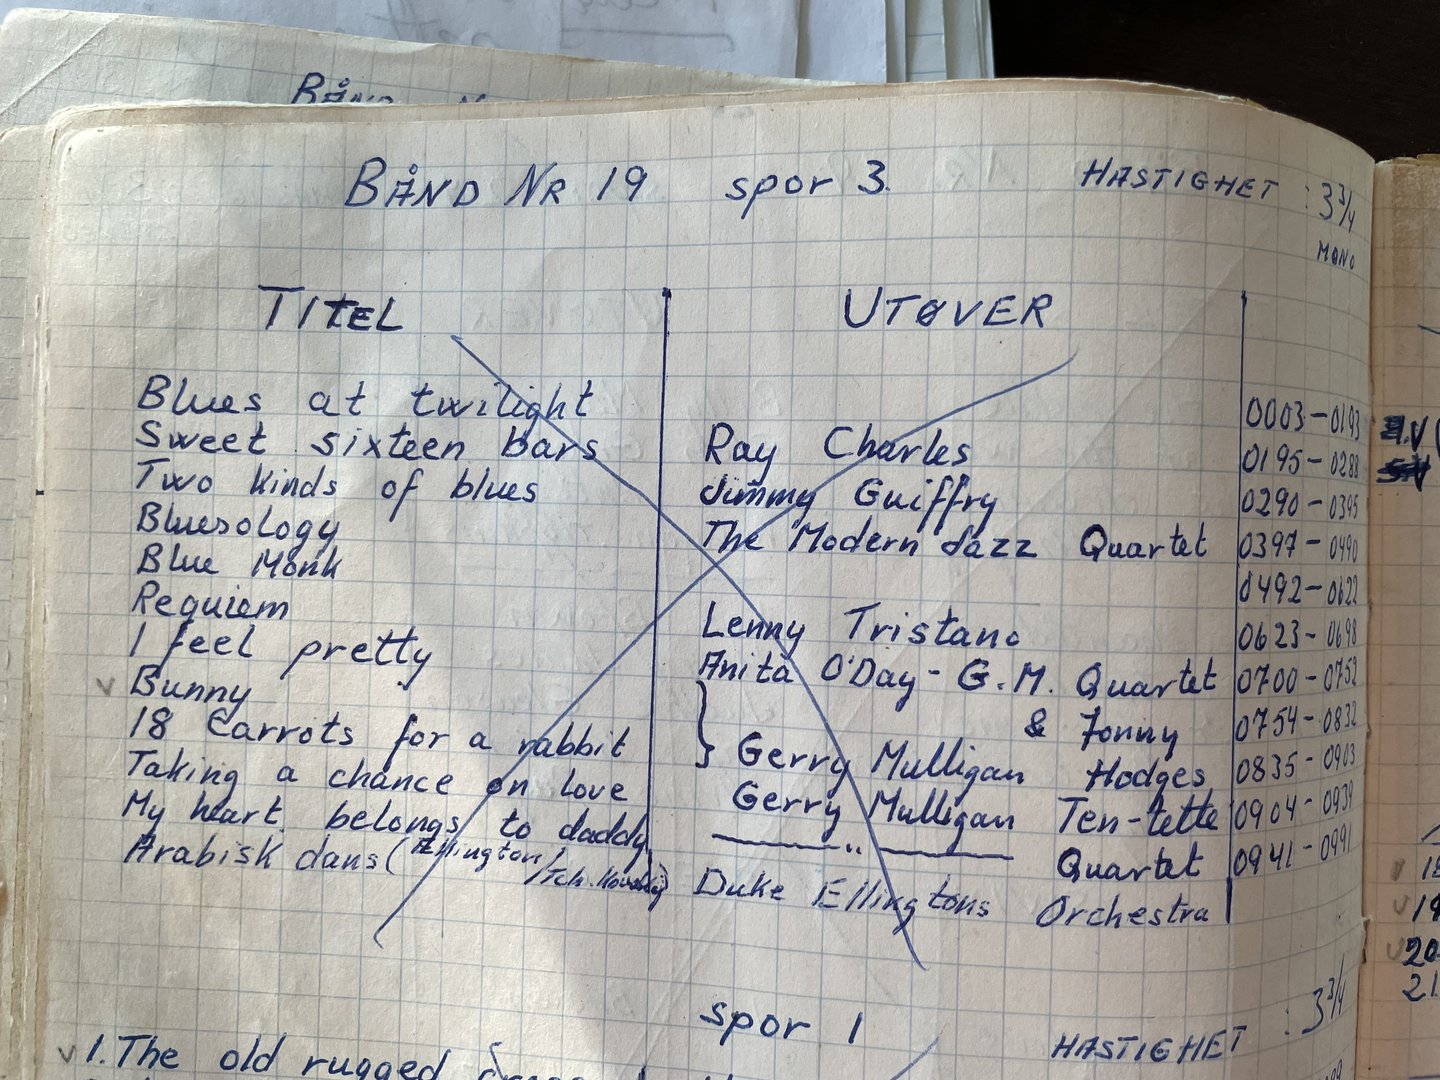 BÅND NR 19 spor 3. HASTIGHET : 3 3/4
MONO
TITEL UTØVER
Blues at twilight 0003-0193
Sweet sixteen bars Ray Charles 0195-0288
Two kinds of blues Jimmy Guiffry 0290-0395
Bluesology The Modern Jazz Quartet 0397-0490
Blue Monk 0492-0622
Requiem Lenny Tristano 0623-0698
I feel pretty Anita O'Day - G.M. Quartet 0700-0752
v Bunny & Jonny 0754-0832
18 Carrots for a rabbit } Gerry Mulligan Hodges 0835-0903
Taking a chance on love Gerry Mulligan Ten-tette 0904-0939
My heart belongs to daddy —— " —— Quartet 0941-0991
Arabisk dans (Ellington/ Duke Ellingtons Orchestra
spor 1 HASTIGHET : 3 3/4
v 1. The old rugged
BÅND
18
v 19
v 20
21